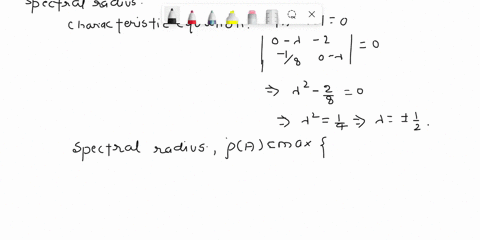 spectral radius.
characteristic = 0
| 0-λ -2 |
| -1/8 0-λ | = 0
⇒ λ² - 2/8 = 0
⇒ λ² = 1/4 ⇒ λ = ± 1/2.
spectral radius, ρ(A) = max {